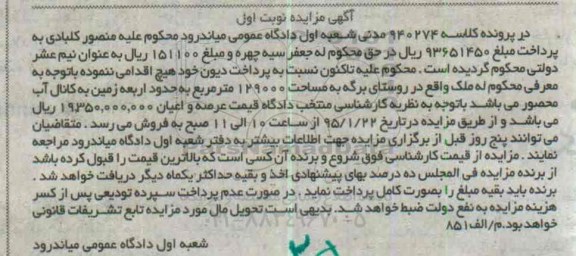 آگهی مزایده نوبت اول
در پرونده کلاسه ۹۴۰۲۷۴ مدنی شعبه اول دادگاه عمومی میاندرود محکوم علیه منصور کلبادی به
پرداخت مبلغ ۹۳۶۵۱۴۵۰ ریال در حق محکوم له جعفر سیه چهره و مبلغ ۱۵۱۱۰۰ ریال به عنوان نیم عشر
دولتی محکوم گردیده است . محکوم علیه تاکنون نسبت به پرداخت دیون خود هیچ اقدامی ننموده باتوجه به
معرفی محکوم له ملک واقع در روستای برگه به مساحت ۱۲۹۰۰۰ مترمربع به حدود اربعه زمین به کانال آب
محصور می باشد باتوجه به نظریه کارشناسی منتخب دادگاه قیمت عرصه و اعیان ۱۹۳۵۰,۰۰۰,۰۰۰ ریال
می باشد و از طریق مزایده در تاریخ ۹۵/۱/۲۲ از ساعت ۱۰ الی ۱۱ صبح به فروش می رسد . متقاضیان
می توانند پنج روز قبل از برگزاری مزایده جهت اطلاعات بیشتر به دفتر شعبه اول دادگاه میاندرود مراجعه
نمایند . مزایده از قیمت کارشناسی فوق شروع و برنده آن کسی است که بالاترین قیمت را قبول کرده باشد
از برنده مزایده فی المجلس ده درصد بهای پیشنهادی اخذ و بقیه حداکثر یکماه دیگر دریافت خواهد شد .
برنده باید بقیه مبلغ را بصورت کامل پرداخت نماید . در صورت عدم پرداخت سپرده تودیعی پس از کسر
هزینه مزایده به نفع دولت ضبط خواهد شد. بدیهی است تحویل مال مورد مزایده تابع تشریفات قانونی
خواهد بود.م/الف ۸۵۱
شعبه اول دادگاه عمومی میاندرود